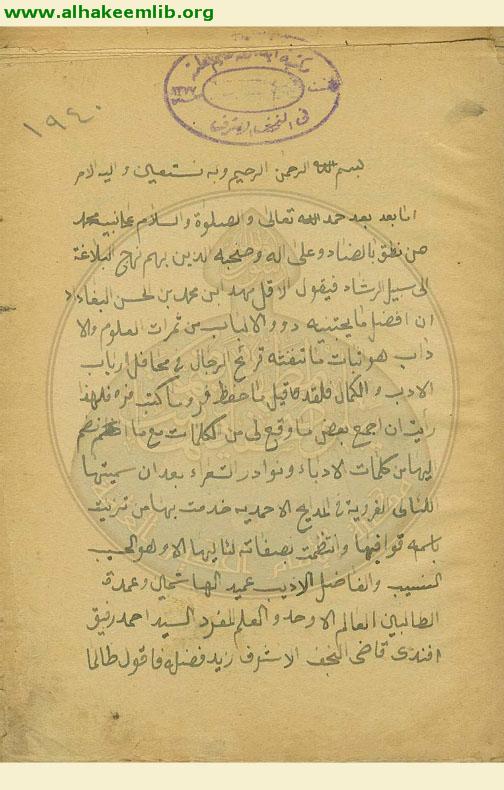 www.alhakeemlib.org
١٩٤٠
في النجف الاشرف
بسم الله الرحمن الرحيم وبه نستعين واليه الامر
اما بعد بعد حمد الله تعالى والصلوة والسلام على نبيه محمد
من نطق بالضاد وعلى اله وصحبه الذين بهم نهج البلاغة
الى سبيل الرشاد فيقول الاقل مهد ابن محمد بن الحسن البغداد
ان افضل ما يجتنيه ذوو الالباب من ثمرات العلوم والا
داب هو نبات ما نتفته قرائح الرجال في محافل ارباب
الادب و الكمال فلقد قيل ما حفظ فر وما كتب قر فلهذا
رأيت ان اجمع بعض ما وقع لي من الكلمات مع ما نظم
اليها من كلمات الادباء ونوادر الشعراء بعد ان سميتها
اللئالى الغروية في المدايح الاحمديه خدمت بها من تزينت
باسمه قوافيها وانتظمت بصفاته لئاليها الا وهو الحسيب
النسيب والفاضل الاديب عميد الهاشمي وعمدة
الطالبين العالم الاوحد والعلم المفرد السيد احمد رفيق
افندى قاضى النجف الاشرف زيد فضله فاقول طالما